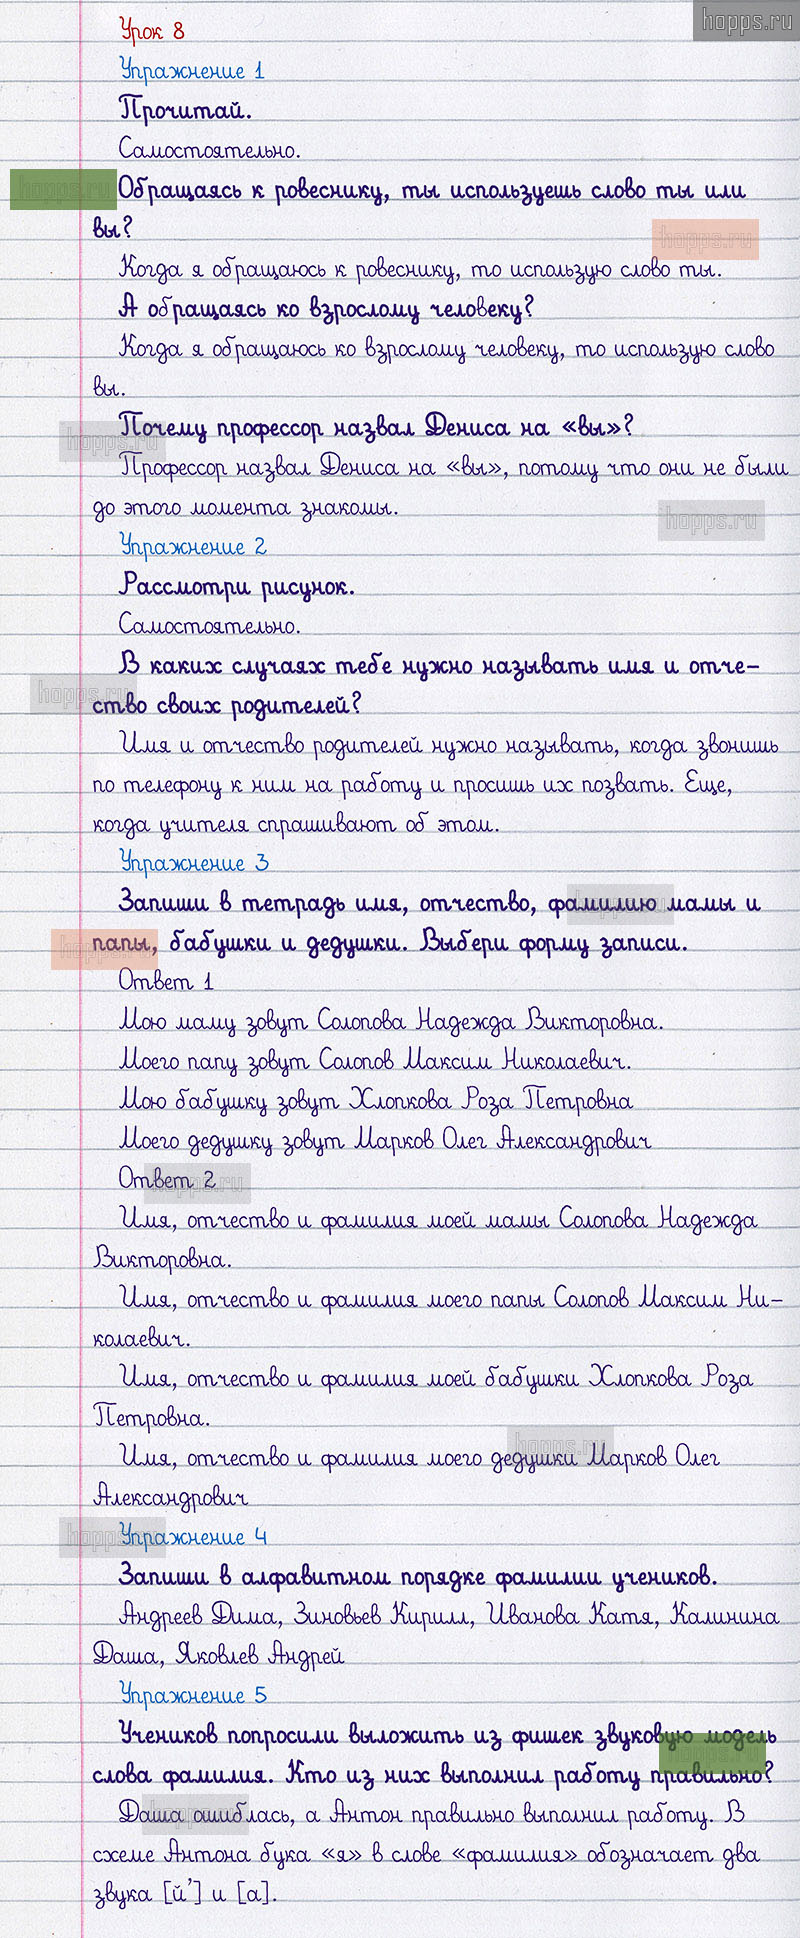 hopps.ru
Урок 8
Упражнение 1
Прочитай.
Самостоятельно.
hopps.ru
Обращаясь к ровеснику, ты используешь слово ты или
вы?
hopps.ru
Когда я обращаюсь к ровеснику, то использую слово ты.
А обращаясь ко взрослому человеку?
Когда я обращаюсь ко взрослому человеку, то использую слово
вы.
Почему профессор назвал Дениса на «вы»?
hopps.ru
Профессор назвал Дениса на «вы», потому что они не были
до этого момента знакомы.
hopps.ru
Упражнение 2
Рассмотри рисунок.
Самостоятельно.
В каких случаях тебе нужно называть имя и отче-
hopps.ru
ство своих родителей?
Имя и отчество родителей нужно называть, когда звонишь
по телефону к ним на работу и просишь их позвать. Еще,
когда учителя спрашивают об этом.
Упражнение 3
Запиши в тетрадь имя, отчество, фамилию мамы и
hopps.ru
папы, бабушки и дедушки. Выбери форму записи.
hopps.ru
Ответ 1
Мою маму зовут Солопова Надежда Викторовна.
Моего папу зовут Солопов Максим Николаевич.
Мою бабушку зовут Хлопкова Роза Петровна
Моего дедушку зовут Марков Олег Александрович
Ответ 2
hopps.ru
Имя, отчество и фамилия моей мамы Солопова Надежда
Викторовна.
Имя, отчество и фамилия моего папы Солопов Максим Ни-
колаевич.
Имя, отчество и фамилия моей бабушки Хлопкова Роза
Петровна.
hopps.ru
Имя, отчество и фамилия моего дедушки Марков Олег
Александрович
hopps.ru
Упражнение 4
Запиши в алфавитном порядке фамилии учеников.
Андреев Дима, Зиновьев Кирилл, Иванова Катя, Калинина
Даша, Яковлев Андрей
Упражнение 5
Учеников попросили выложить из фишек звуковую модель
hopps.ru
слова фамилия. Кто из них выполнил работу правильно?
hopps.ru
Даша ошиблась, а Антон правильно выполнил работу. В
схеме Антона бука «я» в слове «фамилия» обозначает два
звука [й’] и [а].